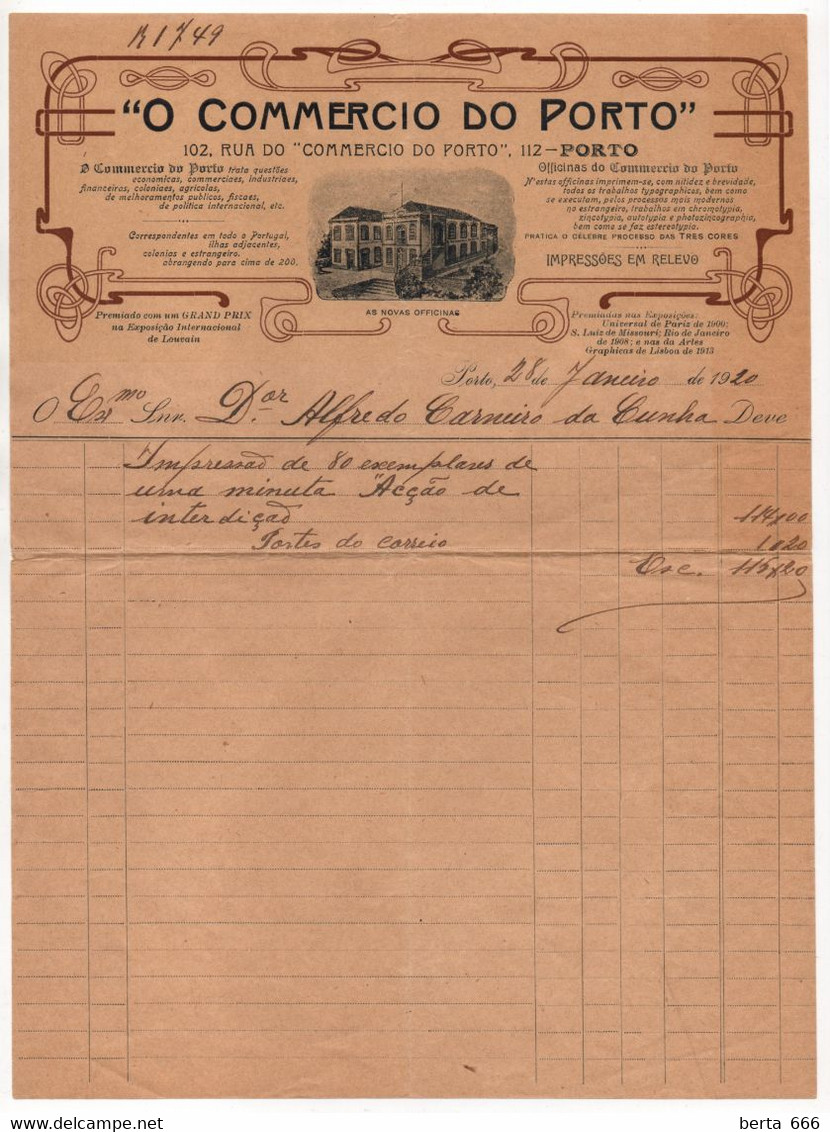 "O COMMERCIO DO PORTO"
102, RUA DO "COMMERCIO DO PORTO", 112—PORTO
O Commercio do Porto trata questões
economicas, commerciaes, industriaes,
financeiras, coloniaes, agricolas,
de melhoramentos publicos, fiscaes,
de politica internacional, etc.
Correspondentes em todo o Portugal,
ilhas adjacentes,
colonias e estrangeiro,
abrangendo para cima de 200.
Premiado com um GRAND PRIX
na Exposição Internacional
de Louvain
AS NOVAS OFFICINAS
Officinas do Commercio do Porto
N'estas officinas imprimem-se, com nitidez e brevidade,
todos os trabalhos typographicos, bem como
se executam, pelos processos mais modernos
no estrangeiro, trabalhos em chromotypia,
zincotypia, autotypia e photozincographia,
bem como se faz estereotypia.
PRATICA O CÉLEBRE PROCESSO DAS TRES CORES
IMPRESSÕES EM RELEVO
Premiadas nas Exposições:
Universal de Paris de 1900;
S. Luiz de Missouri; Rio de Janeiro
de 1908; e nas da Artes
Graphicas de Lisboa de 1913
Porto, 28 de Janeiro de 1920
O Exmo Snr. Dor Alfredo Carneiro da Cunha Deve
Impressão de 80 exemplares de
uma minuta "Acção de
interdição 114$00
Portes do correio 1$20
Esc. 115$20
berta 666